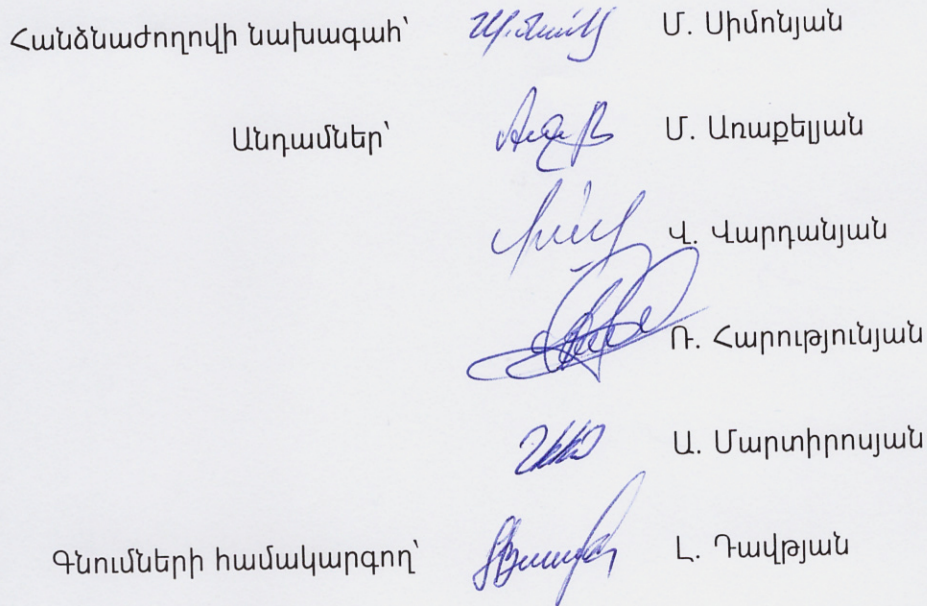 Հանձնաժողովի նախագահ՝ Մ. Սիմոնյան
Անդամներ՝ Մ. Առաքելյան
Վ. Վարդանյան
Ռ. Հարությունյան
Ա. Մարտիրոսյան
Գնումների համակարգող՝ Լ. Դավթյան